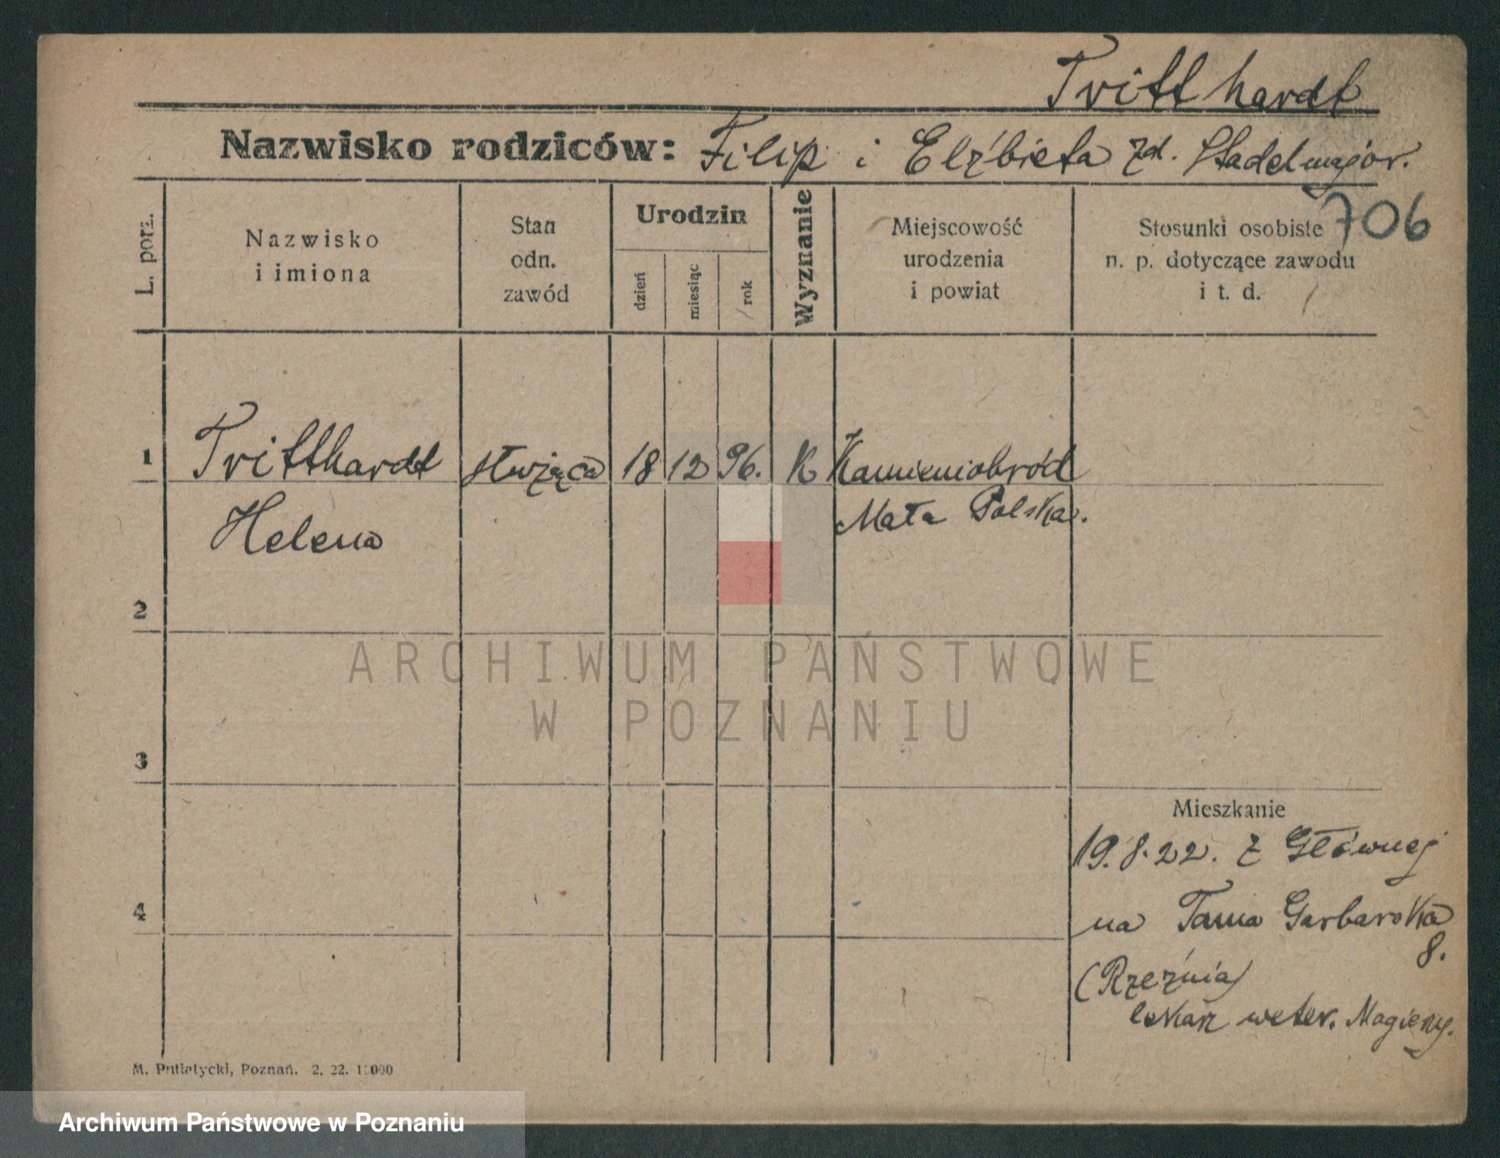 Tritthardt
Nazwisko rodziców: Filip i Elżbieta zd. Stadelmajor.
706
L. porz.
Nazwisko
i imiona
Stan
odn.
zawód
Urodzin
dzień
miesiąc
rok
Wyznanie
Miejscowość
urodzenia
i powiat
Stosunki osobiste
n. p. dotyczące zawodu
i t. d.
1 Tritthardt służąca 18 12 96. K Kamieniobród
Helena Mała Polska.
2
3
4
Mieszkanie
19.8.22. z Głównej
na Tama Garbarska
8.
(Rzeźnia)
lekarz weter. Magiery.
M. Putiatycki, Poznań. 2, 22.
ARCHIWUM PAŃSTWOWE
W POZNANIU
Archiwum Państwowe w Poznaniu